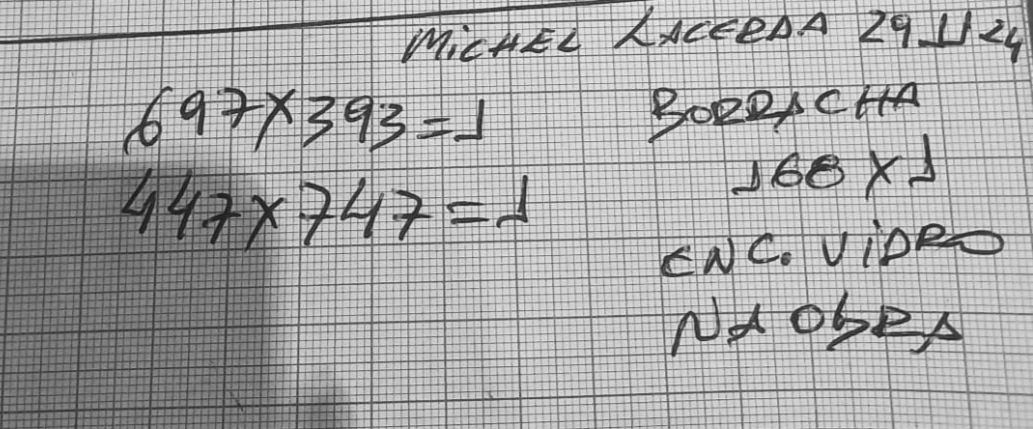 MICHEL LACERDA 29 11 24
697X393=1
447X747=1
BORRACHA
168 X 1
ENC. VIDRO
NA ObRA